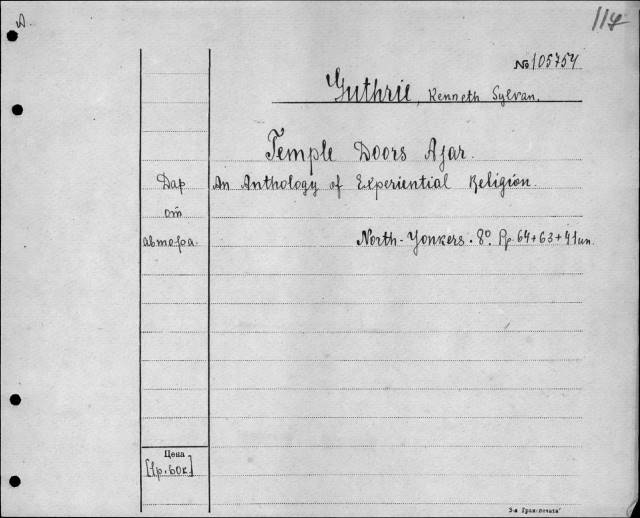 A.
114
№ 105754
Guthrie, Kenneth Sylvan.
Temple Doors Ajar.
An Anthology of Experiential Religion.
Дар
от
автора.
North-Yonkers. 8º. Pp. 64+63+41un.
Цена
[1р. 60к.]
3-я Гран-печатня